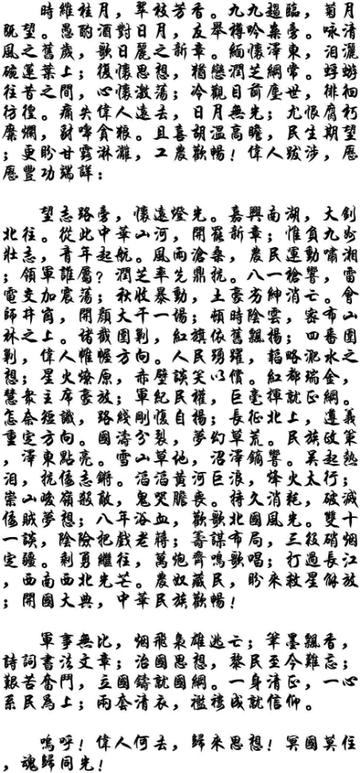 時維桂月，翠枝芳香。九九趨臨，菊月
既望。愚酌酒對日月，友舉得吟桑亭。咏清
風之舊歲，歌日麗之新章。緬懷澤東，泪灑
碗蓮葉上；復懷思想，猶戀潤芝綱常。蜉蝣
往昔之間，心懷激蕩；冷觀目前塵世，徘徊
彷徨。痛失偉人遠去，日月無光；尤恨腐朽
糜爛，豺嗥貪粮。且喜胡温高瞻，民生期望
；更盼甘露淋灕，工農歡暢！偉人跋涉，愿
愿豐功端詳：
望志路亭，懷遠燈光。嘉興南湖，大釗
北往。從此中華山河，開羅新章；惟負九州
壯志，青年起航。風雨滄桑，農民運動嘯湘
；領軍誰屬？潤芝率先鼎抗。八一槍響，雷
電交加震蕩；秋收暴動，土豪劣紳消亡。會
師井崗，開顔大干一場；頓時陰雲，密布山
林之上。諸裁圍剿，紅旗依舊飄揚；四番圍
剿，偉人帷幄方向。人民踴躍，韜略淝水之
想；星火燎原，赤壁談笑以償。紅都瑞金，
慧衆主席豪放；軍紀民權，巨毫揮就正綱。
怎奈短識，路綫剛愎自揚；長征北上，遵義
重定方向。國濤分裂，夢幻草荒。民族政策
，澤東點亮。雪山草地，沼澤鏑響。吴起熱
泪，抗倭志鏘。滔滔黄河巨浪，烽火太行；
崇山峻嶺殺敵，鬼哭膽喪。持久消耗，破滅
倭賊夢想；八年浴血，歡歌北國風光。雙十
一談，陰險把戲老蔣；籌謀布局，三役硝烟
定疆。剩勇繼往，萬炮齊鳴歌唱；打過長江
，西南西北光芒。農奴藏民，盼來救星解放
；開國大典，中華民族歡暢！
軍事無比，烟飛梟雄逃亡；筆墨飄香，
詩詞書法文章；治國思想，黎民至今難忘；
艱苦奮鬥，立國鑄就國綱。一身清正，一心
系民爲上；兩套清衣，襤褸成就信仰。
嗚呼！偉人何去，歸來思想！冥國莫住
，魂歸同光！